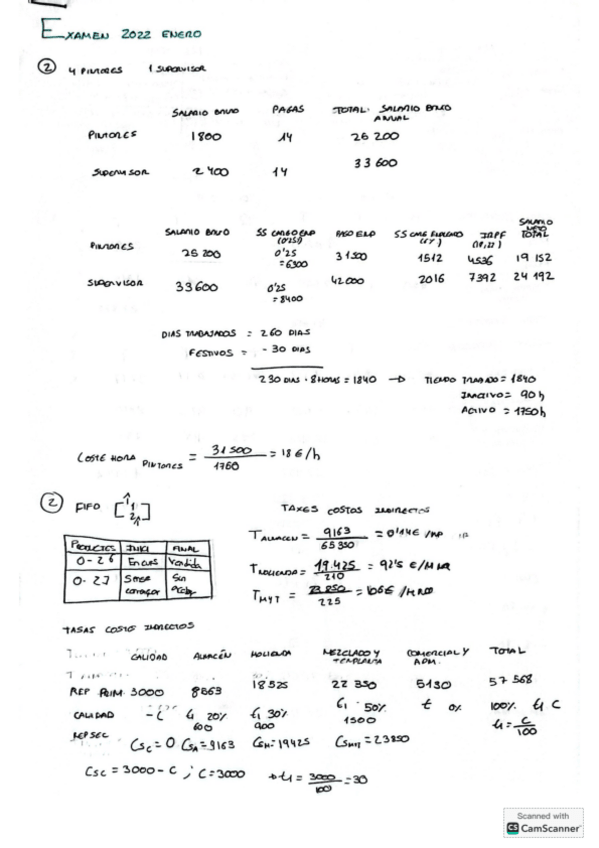 EXAMEN 2022 ENERO
2 4 PINTORES 1 SUPERVISOR
SALARIO BRUTO PAGAS TOTAL SALARIO BRUTO ANUAL
PINTORES 1800 14 25 200
SUPERVISOR 2400 14 33600
SALARIO BRUTO SS CARGO EMP (0'25) PAGO EMP SS CARGO EMPLEADO IRPF SALARIO NETO TOTAL
PINTORES 25 200 0'25 = 6300 31500 1512 4536 19 152
SUPERVISOR 33600 0'25 = 8400 42000 2016 7392 24 192
DIAS TRABAJADOS = 260 DIAS
FESTIVOS = - 30 DIAS
230 DIAS · 8 HORAS = 1840 → TIEMPO TRABAJADO = 1840
INACTIVO = 90h
ACTIVO = 1750h
COSTE HORA PINTORES = 31500 / 1750 = 18 €/h
2 FIFO
TAXES COSTOS INDIRECTOS
PRODUCTES INICI FINAL
O-26 En curs Vendida
O-27 Sense començar Sin
T ALMACEN = 9163 / 65350 = 0'14 €
T MOLIENDA = 19.425 / 210 = 92'5 €/H
T MYT = 23.850 / 225 = 106 €/H
TASAS COSTE INDIRECTOS
CALIDAD ALMACÉN MOLIENDA MEZCLADO Y TEMPLANZA COMERCIAL Y ADM. TOTAL
REP PRIM 3000 8563 18525 22 350 5130 57 568
CALIDAD - C t1 20% 600 t1 30% 900 t1 50% 1500 t 0% 100% t1 C
REP SEC CSC = 0 CSA = 9163 CSM = 19425 CSMYT = 23850 t1 = C / 100
CSC = 3000 - C ; C = 3000 → t1 = 3000 / 100 = 30
Scanned with
CS CamScanner